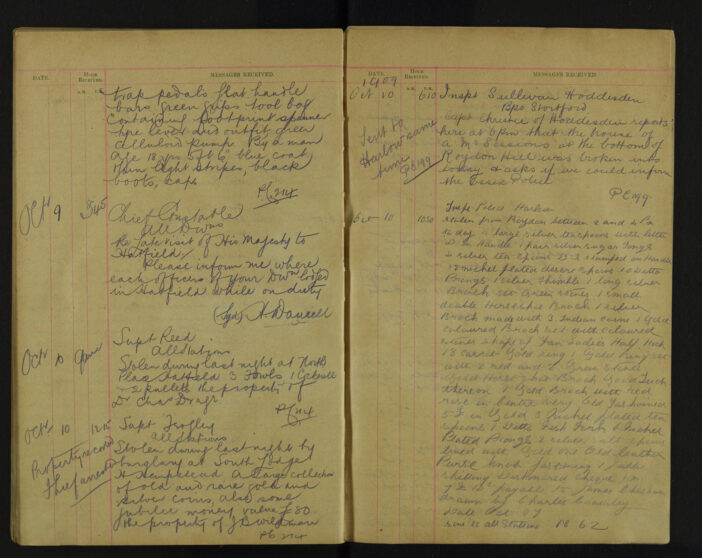 DATE. HOUR RECEIVED. MESSAGES RECEIVED.
A.M. P.M.
trap pedals flat handle
bars green grips tool bag
containing footprint spanner
tyre lever and outfit green
celluloid pump By a man
age 18 yrs 5ft 6" blue coat
thin light stripes, black
boots, cap
PC 214
Oct 9 3.45
Chief Constable
All Dvns
Re late visit of His Majesty to
Hatfield
Please inform me where
each officers of your Dvn
in Hatfield while on duty
Oct 10
Supt Reed
All Stations
Stolen during last night at North
Place Hatfield 3 Fowls 1
& 2 pullets the property of
Dr Chas Drage
PC 214
Oct 10 12.15
Property recovered
Thief arrested
Supt Frogley
all stations
Stolen during last night by
burglary at South Lodge
H Hempstead A large collection
of old and rare gold and
silver coins, also some
jubilee money value £80
the property of
PC 214
DATE. HOUR RECEIVED. MESSAGES RECEIVED.
A.M. P.M.
1909
Oct 10 6.10
Inspt Sullivan Hoddesdon
Bps Stortford
Capt Christie of Hoddesdon reports
here at 6pm that the house of
a Mr Sessions at the bottom of
Roydon Hill was broken into
today & asks if we could inform
the Essex Police
PC 199
Sent to
Harlow same
time
PC 199
Oct 10 10.30
Insp Police Harlow
Stolen from Roydon between 2 and 6 Pm
to day 12 large silver teaspoons with letter
D on Handle 1 pair silver sugar Tongs
silver tea spoons stamped on Handle
12 nickel plated desert spoons
1 silver thimble 1 long silver
Brooch set Green stones 1 small
double Horseshoe Brooch 1 silver
Brooch made with 3 Indian coins 1 Gold
coloured Brooch set with coloured
stones shape of Fan Ladies Half Hoop
18 carrat Gold ring 1 Gold ring set
with 2 red and 2 Green stones
Gold Horse shoe Brooch Good Luck
thereon 1 Gold Brooch with red
rose in centre very old fashioned
5/- in Gold 3 Nickel plated tea
spoons 1 Table Fork 6 Nickel
Plated 2 silver salt spoons
lined with Gold one Old leather
Purse knob fastening 1
cheque for
payable to James
drawn by Charles
date Oct
sent to all Stations PC 62